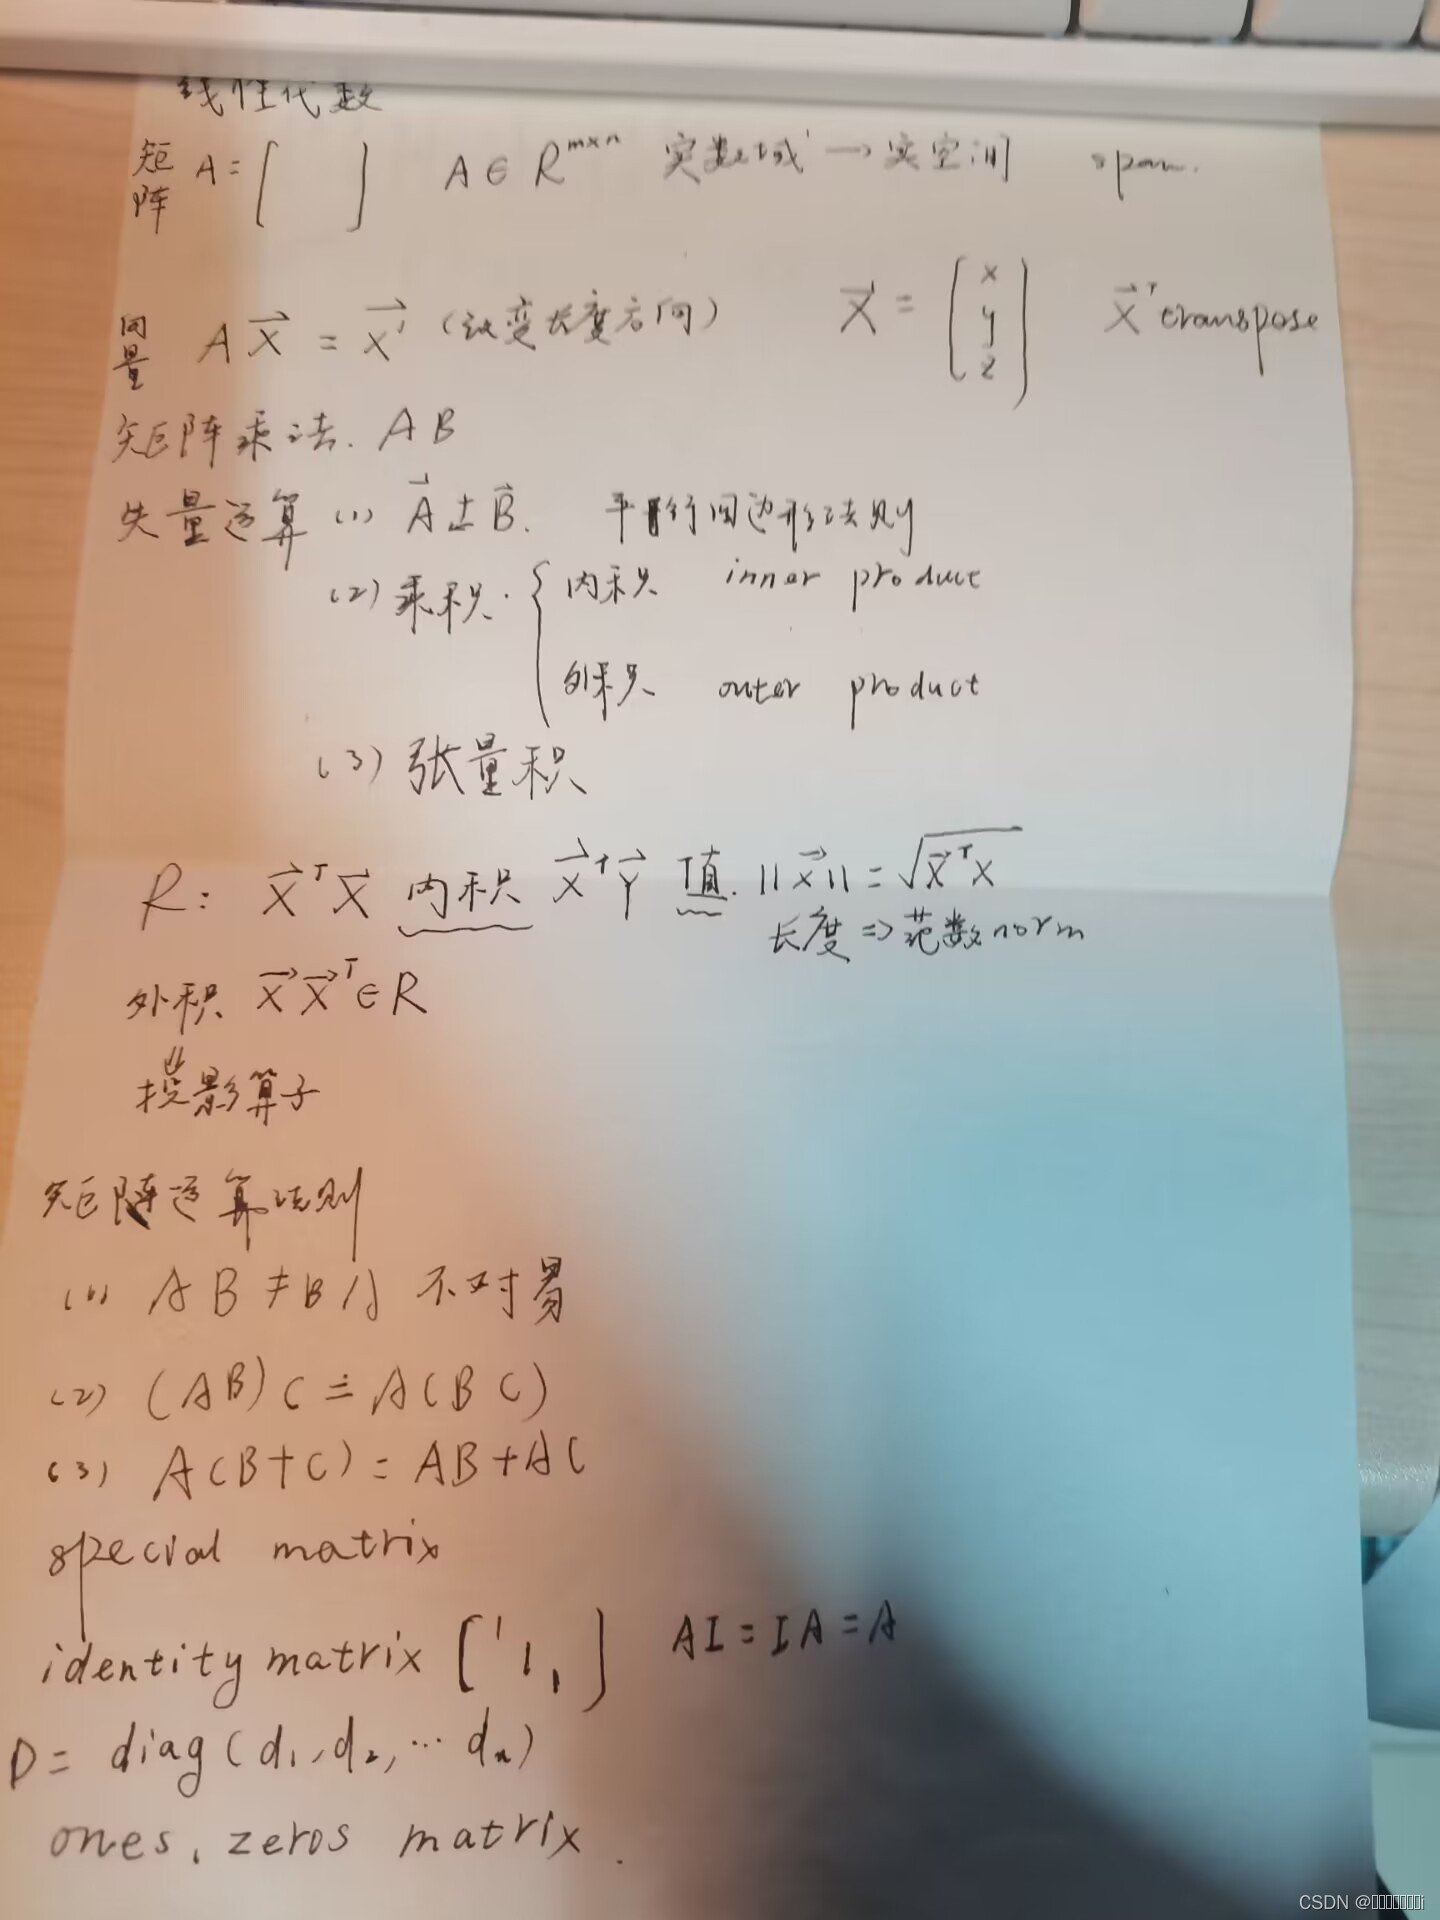 线性代数
矩阵 A = [ ] A ∈ R^{m×n} 实数域 → 实空间 span.
向量 A\vec{X} = \vec{X'} (改变长度方向) \vec{X} = [x y z] \vec{X}^T transpose
矩阵乘法. AB
矢量运算 (1) \vec{A} ± \vec{B}. 平行四边形法则
(2) 乘积. { 内积 inner product
外积 outer product
(3) 张量积
R: \vec{X}^T\vec{X} 内积 \vec{X}^T\vec{Y} 值. ||\vec{x}|| = √(\vec{X}^T X)
长度 => 范数 norm
外积 \vec{X}\vec{X}^T ∈ R
⇓
投影算子
矩阵运算法则
(1) AB ≠ BA 不对易
(2) (AB)C = A(BC)
(3) A(B+C) = AB+AC
special matrix
identity matrix [1 1 1] AI = IA = A
D = diag(d₁, d₂, ··· dₙ)
ones, zeros matrix.